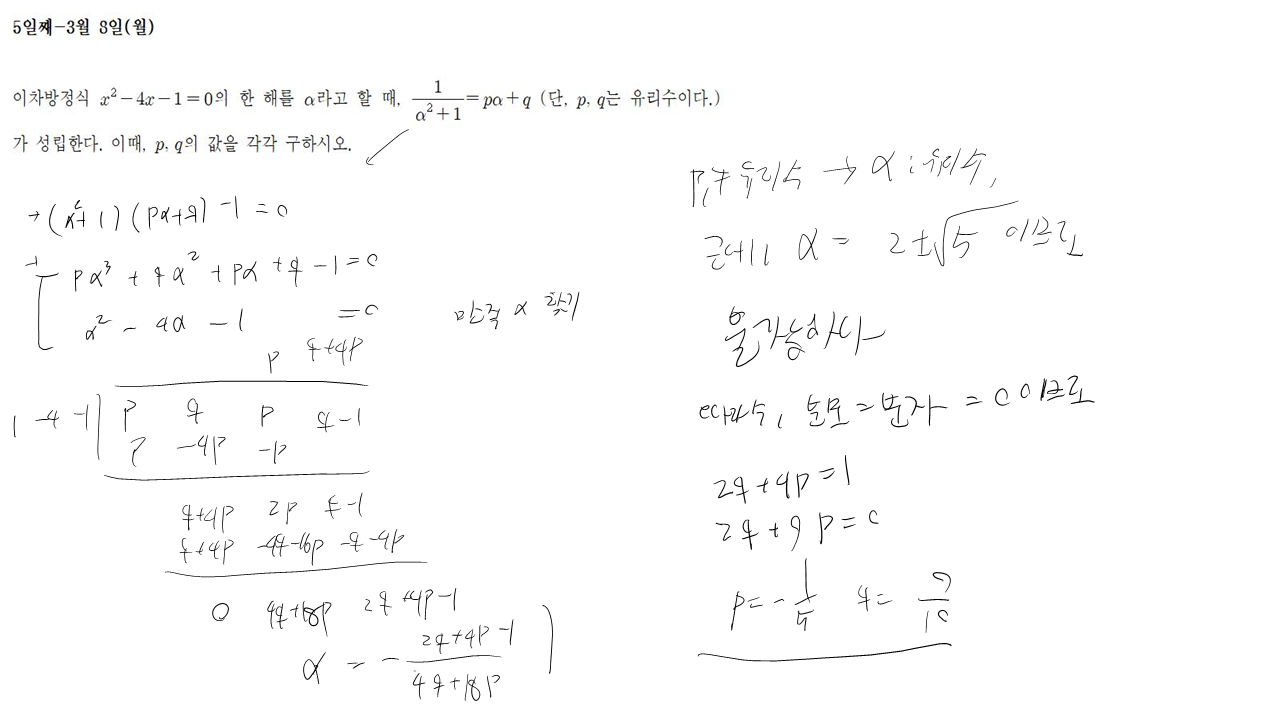 5일째-3월 8일(월)
이차방정식 x²-4x-1=0의 한 해를 α라고 할 때, 1/(α²+1)=pα+q (단, p, q는 유리수이다.)
가 성립한다. 이때, p, q의 값을 각각 구하시오.
→ (α²+1)(pα+q) -1 = 0
pα³ + qα² + pα + q - 1 = 0
α² - 4α - 1 = 0
만족 α 찾기
p q+4p
1 -4 -1 p q p q-1
p -4p -p
q+4p 2p q-1
q+4p -4q-16p -q-4p
0 4q+18p 2q+4p-1
α = - (2q+4p-1)/(4q+18p)
p, q 유리수 → α: 유리수,
근데, α = 2±√5 이므로
불가능하다
따라서, 분모=분자=0 이므로
2q+4p=1
2q+9p=0
p=-1/5 q=9/10